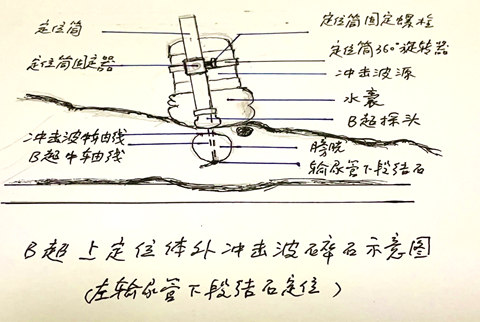 定位筒
定位筒固定器
冲击波中轴线
B超中轴线
定位筒固定螺栓
定位筒360°旋转器
冲击波源
水囊
B超探头
膀胱
输尿管下段结石
B超上定位体外冲击波碎石示意图
(左输尿管下段结石定位)